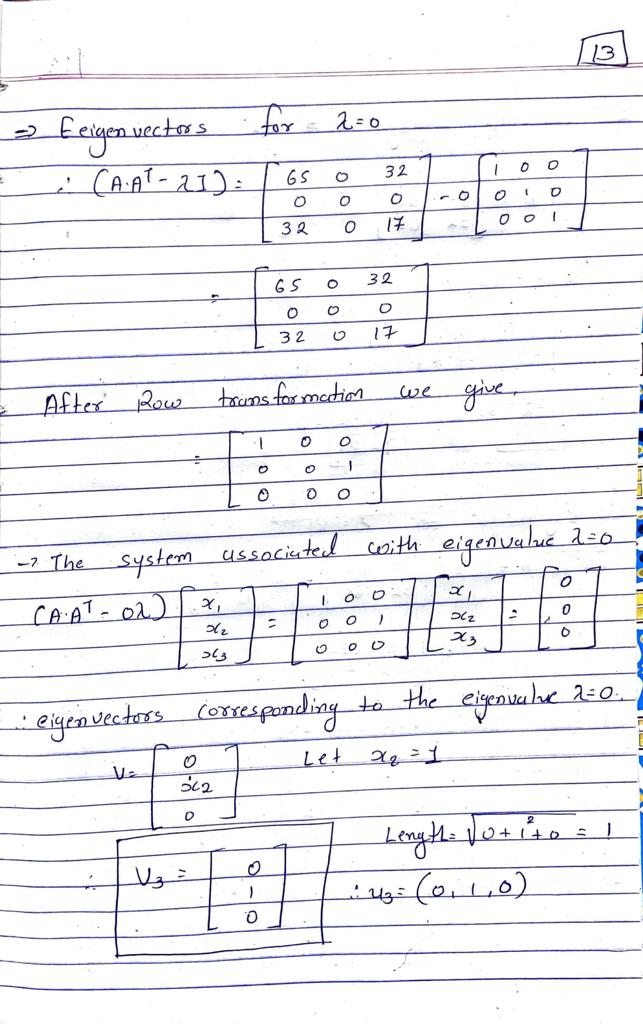 13
=> Eeigenvectors for λ=0
∴ (A·Aᵀ - λI) = [ 65 0 32 ] - 0 [ 1 0 0 ]
[ 0 0 0 ] [ 0 1 0 ]
[ 32 0 17 ] [ 0 0 1 ]
= [ 65 0 32 ]
[ 0 0 0 ]
[ 32 0 17 ]
After Row transformation we give,
= [ 1 0 0 ]
[ 0 0 1 ]
[ 0 0 0 ]
-> The system associated with eigenvalue λ=0
(A·Aᵀ - 0λ) [ x₁ ] = [ 1 0 0 ] [ x₁ ] = [ 0 ]
[ x₂ ] [ 0 0 1 ] [ x₂ ] [ 0 ]
[ x₃ ] [ 0 0 0 ] [ x₃ ] [ 0 ]
∴ eigenvectors corresponding to the eigenvalue λ=0.
V= [ 0 ] Let x₂ = 1
[ x₂ ]
[ 0 ]
Length = √0+1²+0 = 1
∴ V₃ = [ 0 ] ∴ u₃ = (0, 1, 0)
[ 1 ]
[ 0 ]